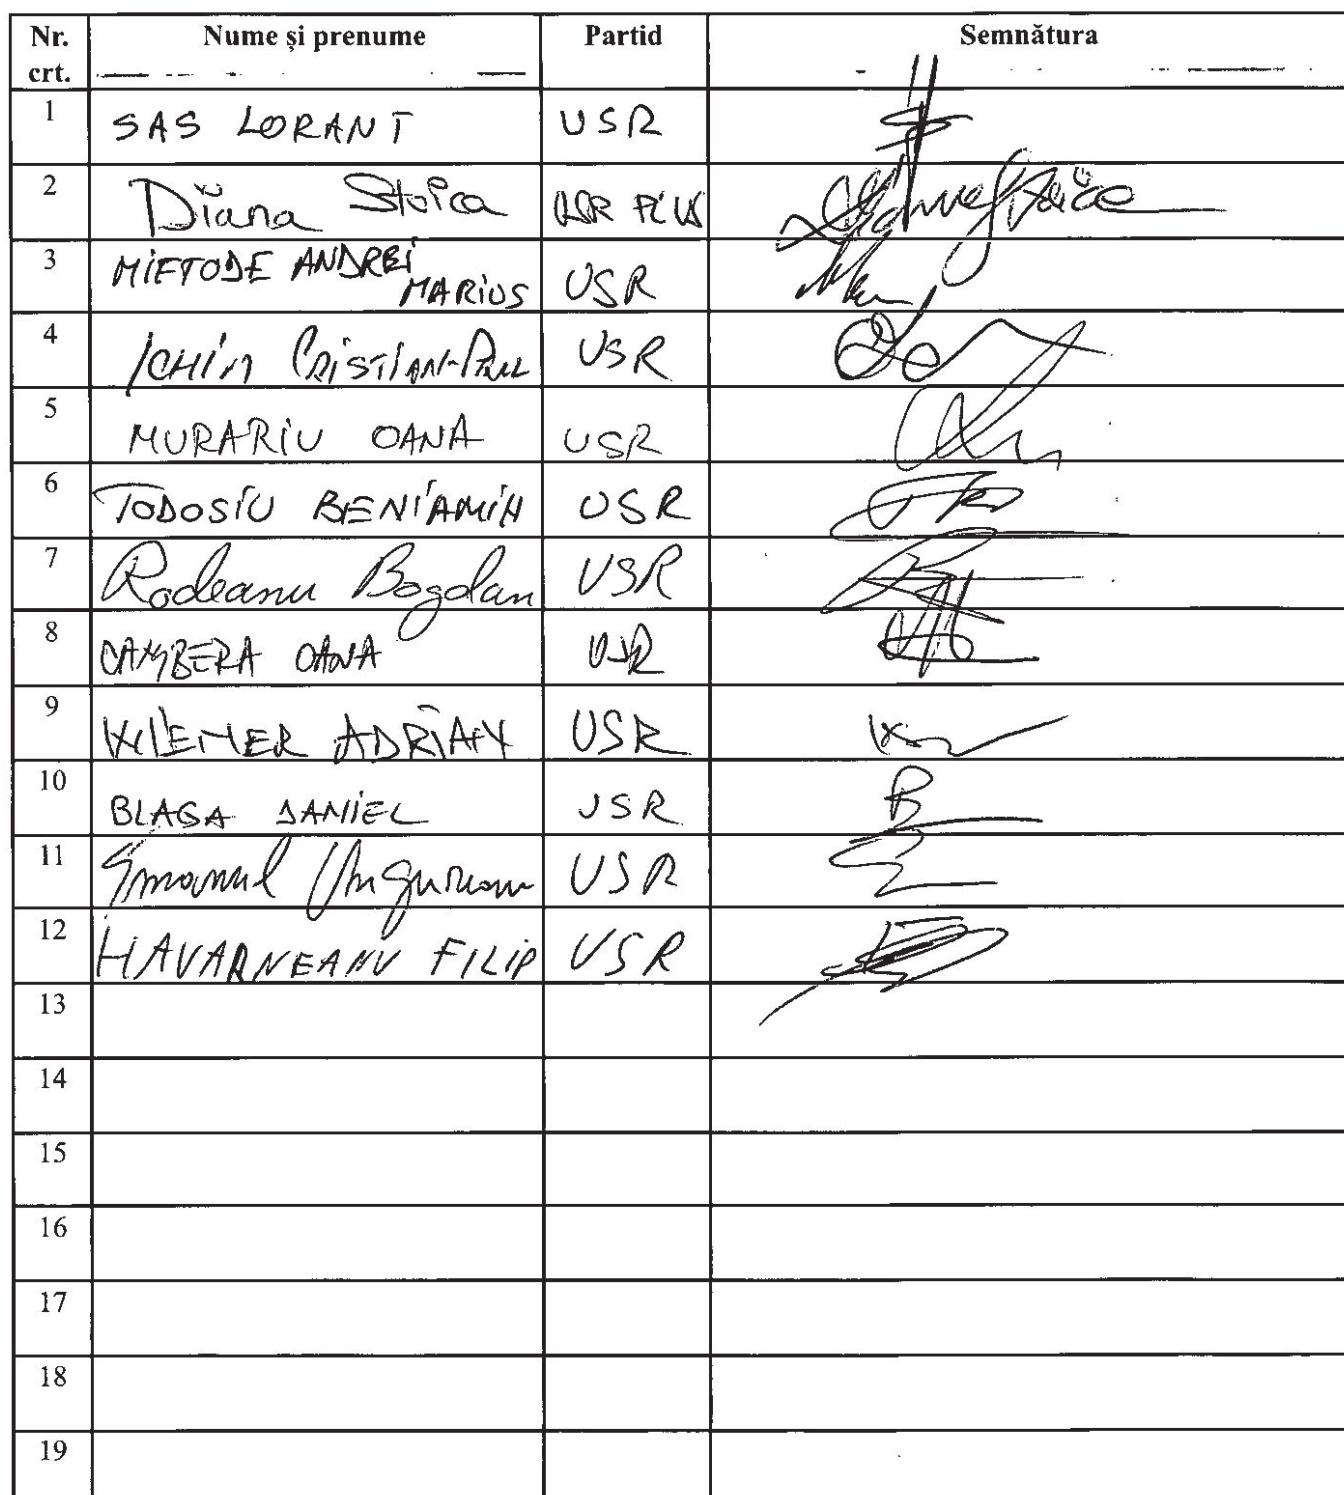 Nr. crt. Nume și prenume Partid Semnătura
1 SAS LORANT USR
2 Diana Stoica USR PLUS
3 MIETODE ANDREI MARIUS USR
4 ICHIM CRISTIAN-PAUL USR
5 MURARIU OANA USR
6 TODOSIU BENIAMIN USR
7 Rodeanu Bogdan USR
8 CAMBERA OANA USR
9 WIENER ADRIAN USR
10 BLAGA DANIEL USR
11 Emanuel Ungureanu USR
12 HAVARNEANU FILIP USR
13
14
15
16
17
18
19